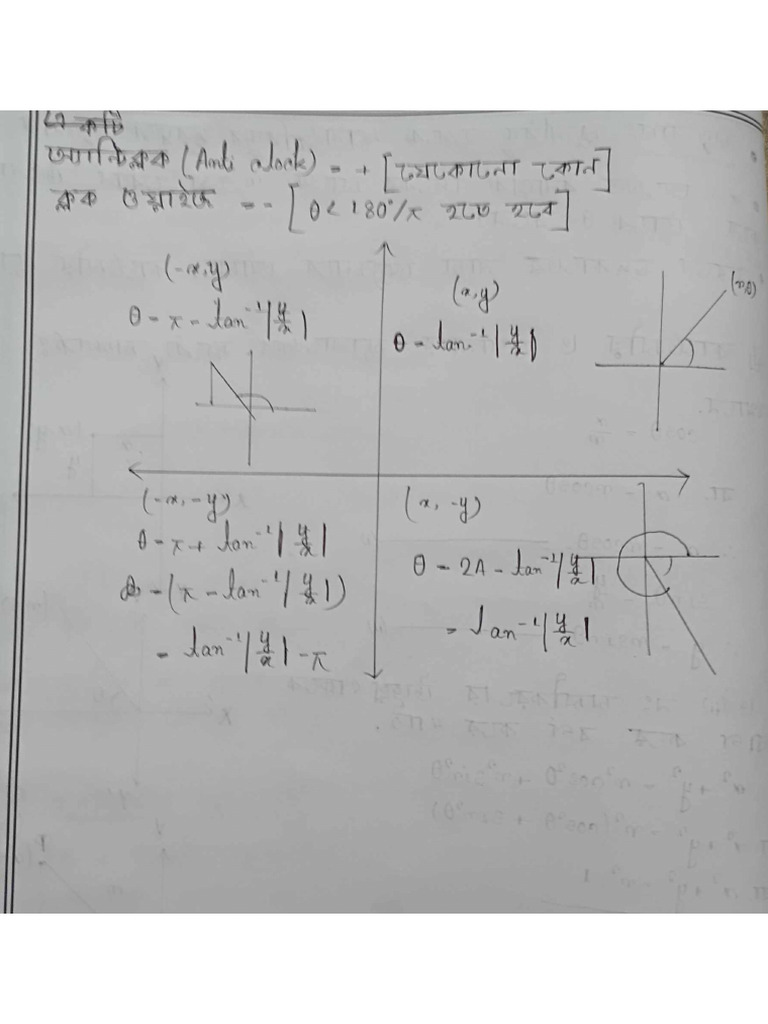 একটি
অ্যান্টিক্লক (Anti clock) = + [যেকোনো কোন]
ক্লক ওয়াইজ = - [θ < 180°/π হতে হবে]
(-x,y)
θ = π - tan⁻¹|y/x|
(x,y)
θ = tan⁻¹|y/x|
(-x, -y)
θ = π + tan⁻¹|y/x|
= -(π - tan⁻¹|y/x|)
= tan⁻¹|y/x| - π
(x, -y)
θ = 2π - tan⁻¹|y/x|
= tan⁻¹|y/x|